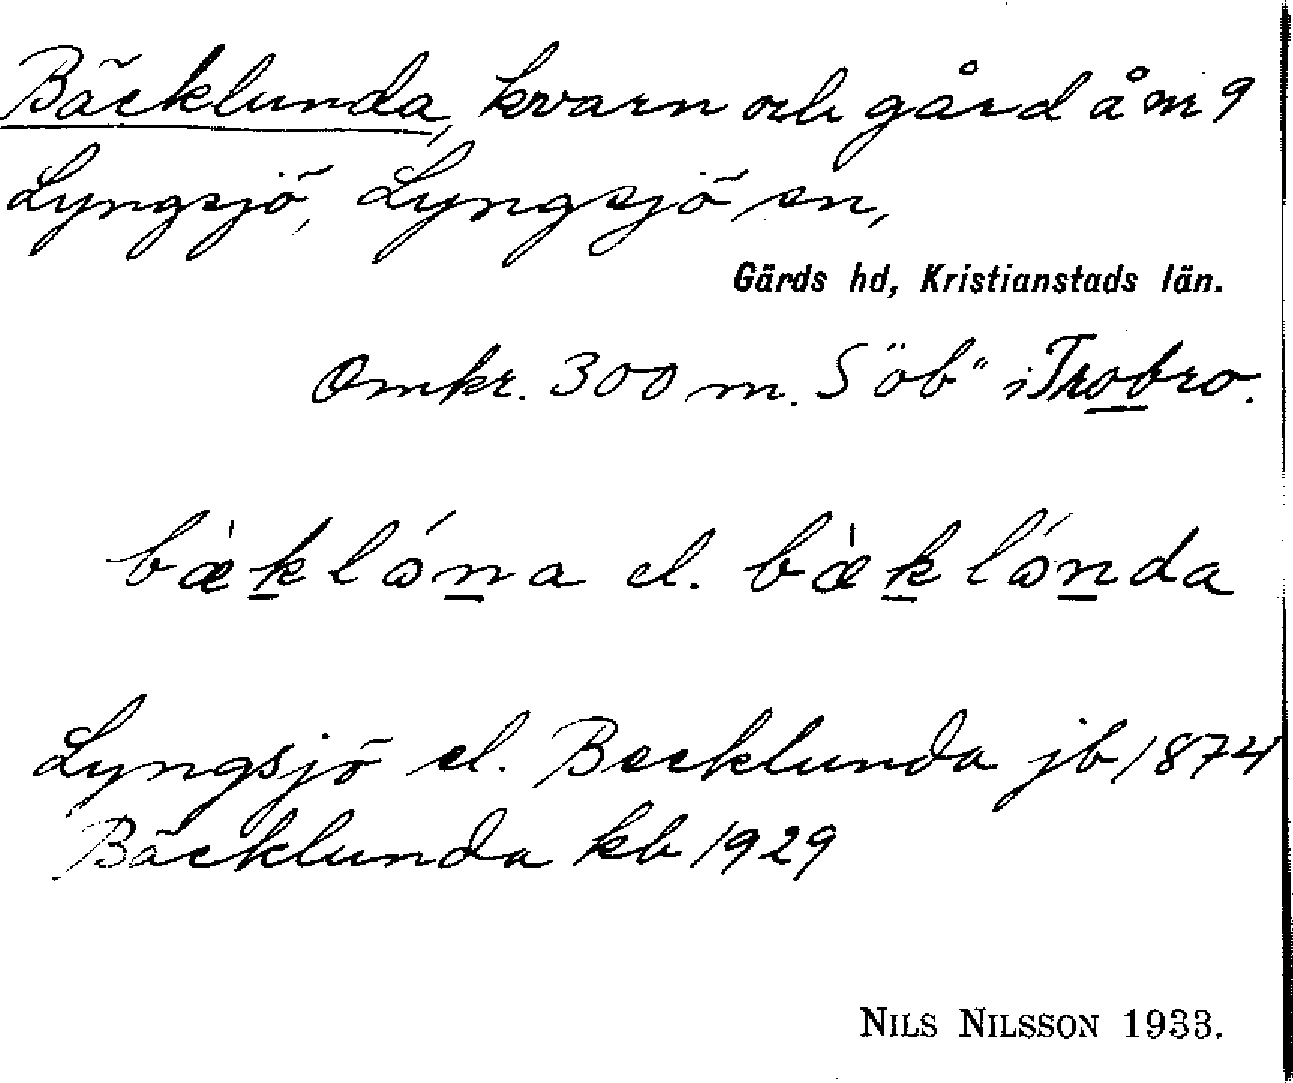 Bäcklunda, kvarn och gård å nr 9
Lyngsjö, Lyngsjö sn,
Gärds hd, Kristianstads län.
Omkr. 300 m. S "ob" i Trobro.
bæ̀klóna el. bæ̀klónda
Lyngsjö el. Becklunda jb 1874
Bäcklunda kb 1929
NILS NILSSON 1933.